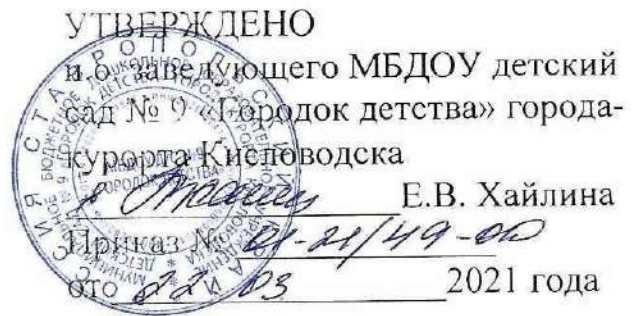 УТВЕРЖДЕНО
и.о. заведующего МБДОУ детский
сад № 9 «Городок детства» города-
курорта Кисловодска
Е.В. Хайлина
Приказ № 01-21/49-од
ото 22 03 2021 года